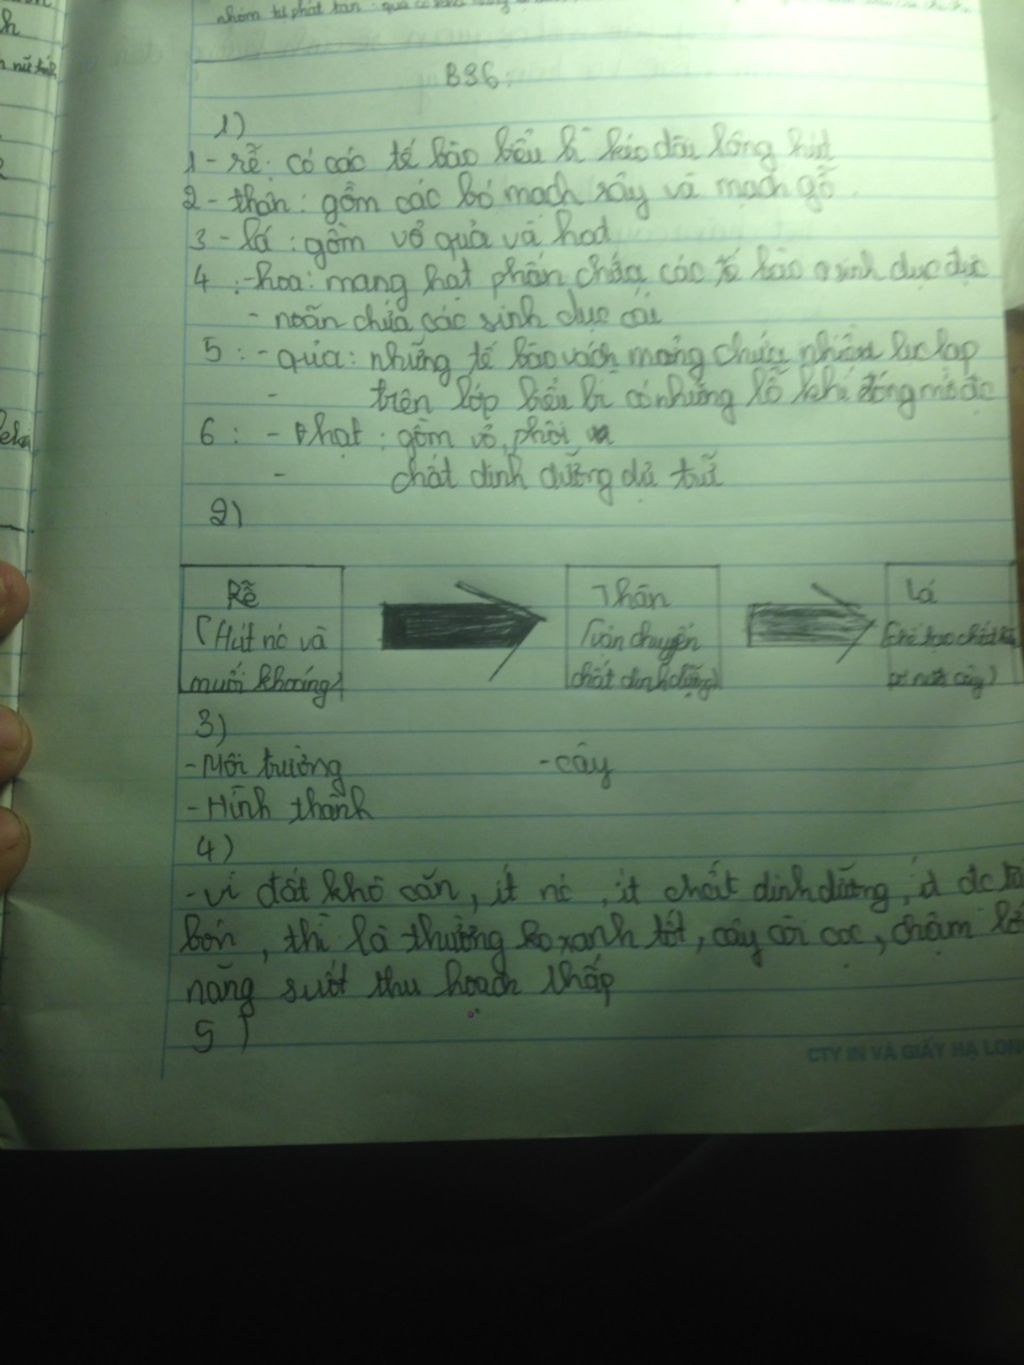 h
nhóm tự phát tán: quả có
B36:
1)
1 - rễ: có các tế bào biểu bì kéo dài lông hút
2 - thân: gồm các bó mạch rây và mạch gỗ.
3 - lá: gồm vỏ quả và hạt
4: - hoa: mang hạt phấn chứa các tế bào sinh dục đực
- noãn chứa các sinh dục cái
5: - quả: những tế bào vách mỏng chứa nhiều lục lạp
- trên lớp biểu bì có những lỗ khí đóng mở đc
6: - hạt: gồm vỏ, phôi
- chất dinh dưỡng dự trữ
2)
Rễ
(Hút nc và
muối khoáng)
Thân
(vận chuyển
chất dinh dưỡng)
Lá
3)
- Môi trường - cây
- Hình thành
4)
- vì đất khô cằn, ít nc, ít chất dinh dưỡng, ít đc
bón, thì lá thường ko xanh tốt, cây còi cọc, chậm
năng suất thu hoạch thấp
5)
CTY IN VÀ GIẤY HẠ LON